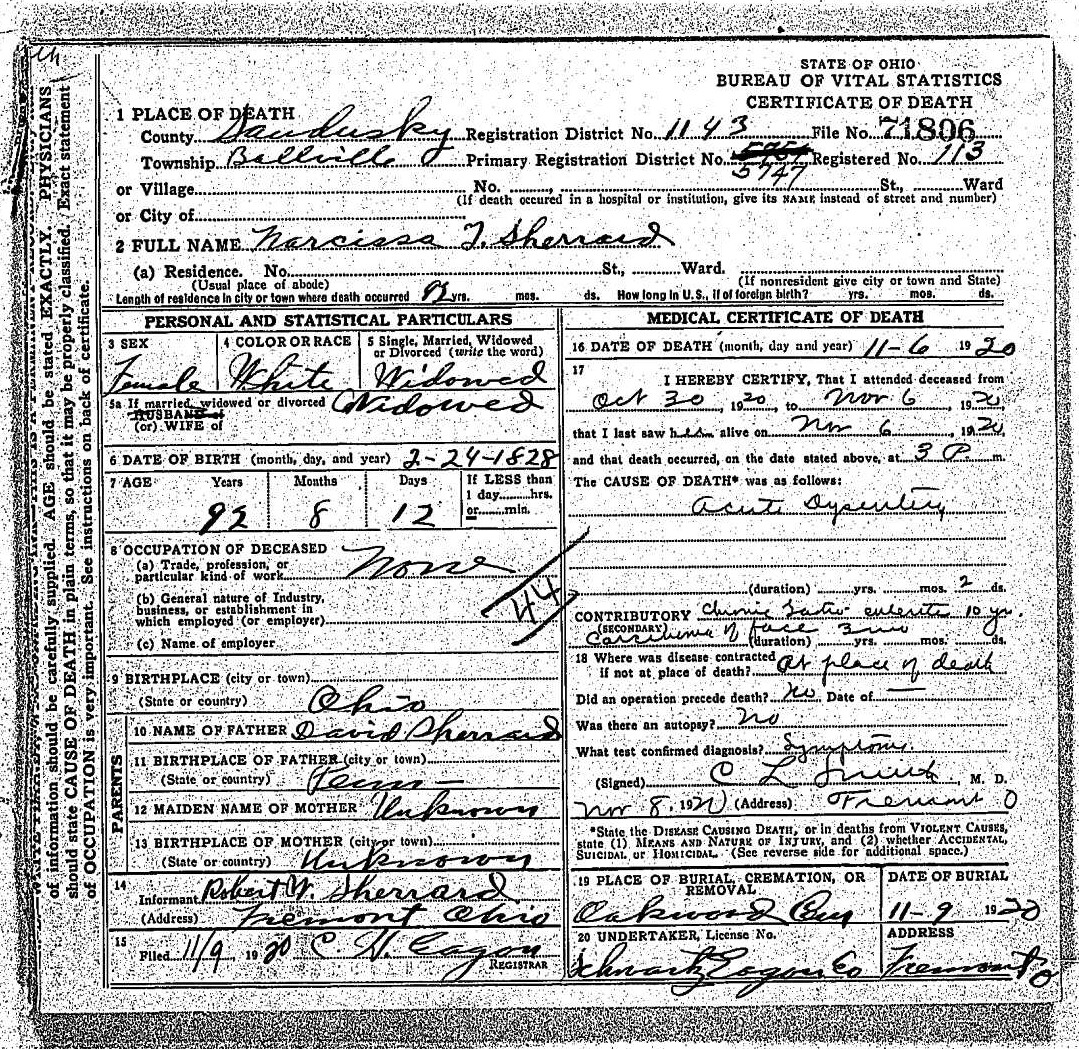 STATE OF OHIO
BUREAU OF VITAL STATISTICS
CERTIFICATE OF DEATH
1 PLACE OF DEATH
County Sandusky Registration District No. 1143 File No. 71806
Township Ballville Primary Registration District No. 5747 Registered No. 113
or Village No. St., Ward
(If death occured in a hospital or institution, give its NAME instead of street and number)
or City of
2 FULL NAME Narcissa T. Sherrard
(a) Residence. No. St., Ward.
(Usual place of abode) (If nonresident give city or town and State)
Length of residence in city or town where death occurred 92 yrs. mos. ds. How long in U.S., if of foreign birth? yrs. mos. ds.
PERSONAL AND STATISTICAL PARTICULARS
3 SEX 4 COLOR OR RACE 5 Single, Married, Widowed
or Divorced (write the word)
Female White Widowed
5a If married, widowed or divorced Widowed
HUSBAND of
(or) WIFE of
6 DATE OF BIRTH (month, day, and year) 2-24-1828
7 AGE Years Months Days If LESS than
1 day hrs.
or min.
92 8 12
8 OCCUPATION OF DECEASED
(a) Trade, profession, or
particular kind of work None
(b) General nature of Industry,
business, or establishment in
which employed (or employer)
44
(c) Name of employer
9 BIRTHPLACE (city or town)
(State or country) Ohio
PARENTS
10 NAME OF FATHER David Sherrard
11 BIRTHPLACE OF FATHER (city or town)
(State or country) Penn
12 MAIDEN NAME OF MOTHER Unknown
13 BIRTHPLACE OF MOTHER (city or town)
(State or country) Unknown
14
Informant Robert W. Sherrard
(Address) Fremont Ohio
15
Filed 11/9 1920 C. H. Eagon
REGISTRAR
MEDICAL CERTIFICATE OF DEATH
16 DATE OF DEATH (month, day and year) 11-6 1920
17
I HEREBY CERTIFY, That I attended deceased from
Oct 30, 1920, to Nov 6, 1920,
that I last saw h alive on Nov 6, 1920,
and that death occurred, on the date stated above, at 3 P m.
The CAUSE OF DEATH* was as follows:
Acute Dysentery
(duration) yrs. mos. 2 ds.
CONTRIBUTORY Chronic 10 yr.
(SECONDARY)
Carcinoma of face 3 mo (duration) yrs. mos. ds.
18 Where was disease contracted
if not at place of death? At place of death
Did an operation precede death? No Date of —
Was there an autopsy? No
What test confirmed diagnosis? Symptoms.
(Signed) C L Smith M. D.
Nov 8, 1920 (Address) Fremont O
*State the DISEASE CAUSING DEATH, or in deaths from VIOLENT CAUSES,
state (1) MEANS AND NATURE OF INJURY, and (2) whether ACCIDENTAL,
SUICIDAL or HOMICIDAL. (See reverse side for additional space.)
19 PLACE OF BURIAL, CREMATION, OR
REMOVAL
Oakwood Cem
DATE OF BURIAL
11-9 1920
20 UNDERTAKER, License No.
Schwartz Eagon Co
ADDRESS
Fremont O
of information should be carefully supplied. AGE should be stated EXACTLY. PHYSICIANS
should state CAUSE OF DEATH in plain terms, so that it may be properly classified. Exact statement
of OCCUPATION is very important. See instructions on back of certificate.